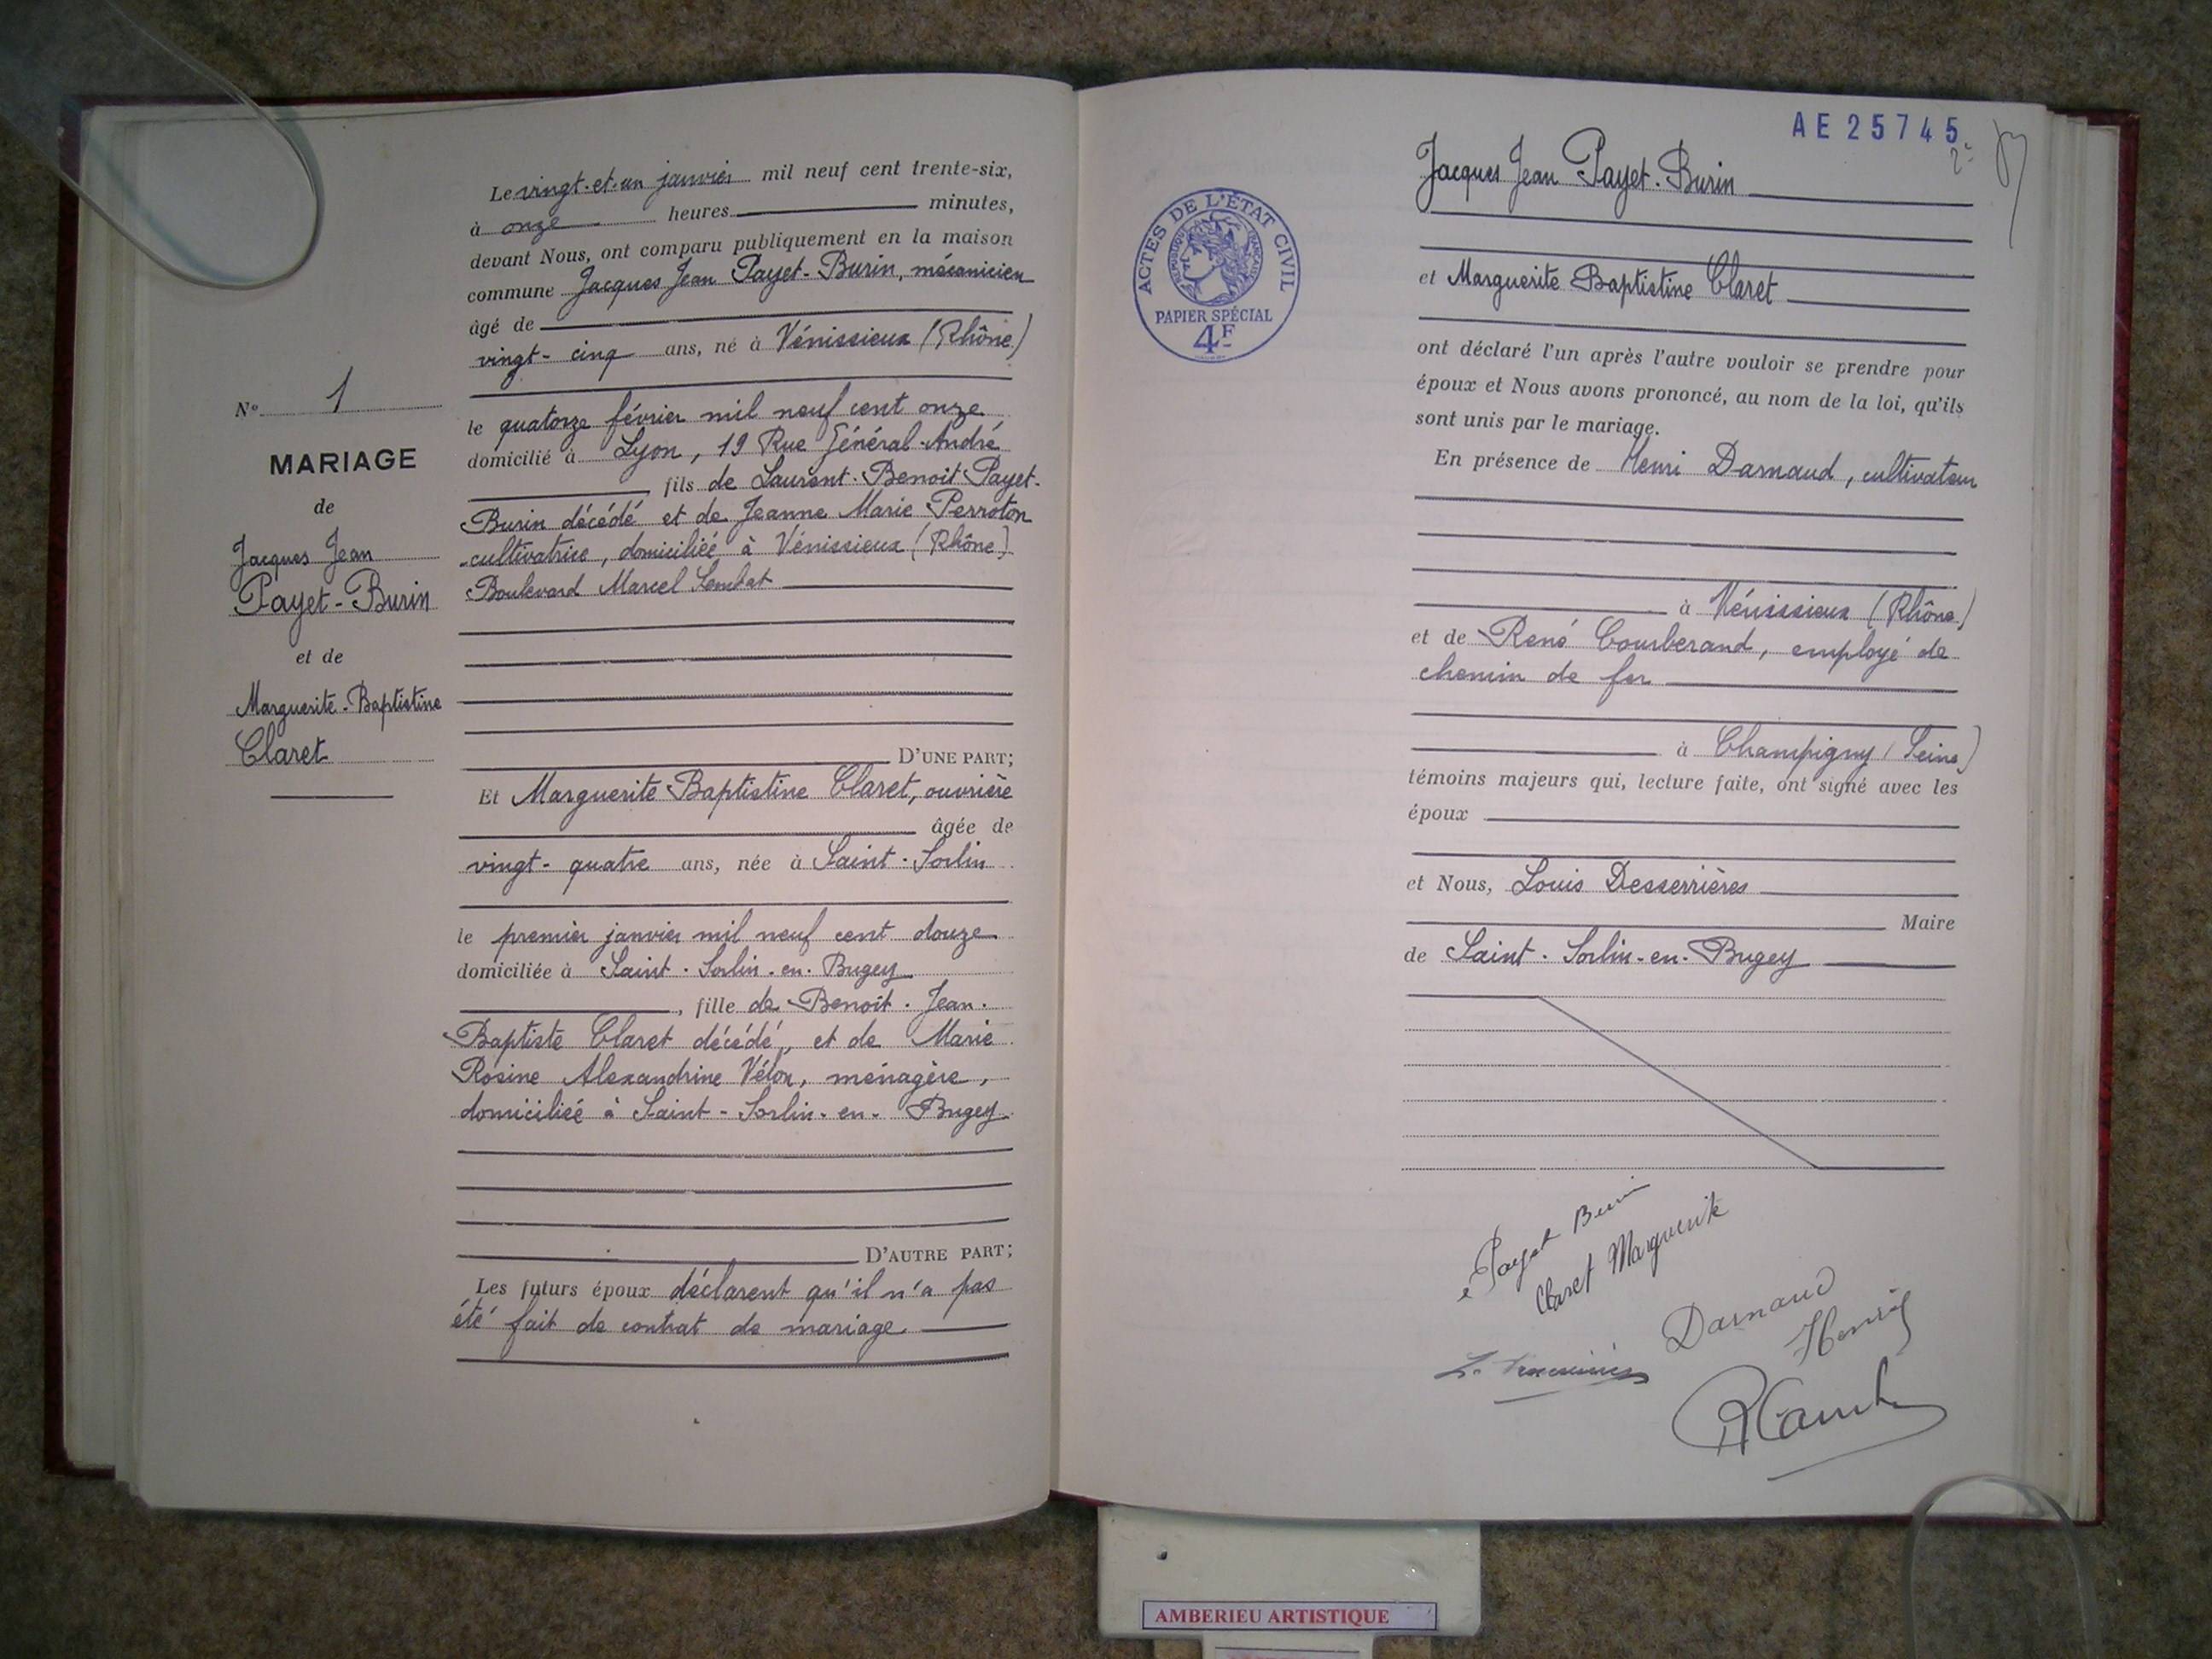 N° 1
MARIAGE
de
Jacques Jean
Payet-Burin
et de
Marguerite-Baptistine
Claret
Le vingt-et-un janvier mil neuf cent trente-six,
à onze heures minutes,
devant Nous, ont comparu publiquement en la maison
commune Jacques Jean Payet-Burin, mécanicien
âgé de
vingt-cinq ans, né à Vénissieux (Rhône)
le quatorze février mil neuf cent onze
domicilié à Lyon, 19 Rue Général-André
fils de Laurent-Benoit Payet-
Burin décédé et de Jeanne Marie Perroton
cultivatrice, domiciliée à Vénissieux (Rhône)
Boulevard Marcel Sembat
D'UNE PART;
Et Marguerite Baptistine Claret, ouvrière
âgée de
vingt-quatre ans, née à Saint-Sorlin
le premier janvier mil neuf cent douze
domiciliée à Saint-Sorlin-en-Bugey
, fille de Benoit-Jean-
Baptiste Claret décédé, et de Marie
Rosine Alexandrine Vélox, ménagère,
domiciliée à Saint-Sorlin-en-Bugey
D'AUTRE PART;
Les futurs époux déclarent qu'il n'a pas
été fait de contrat de mariage.
AE25745
ACTES DE L'ÉTAT CIVIL
RÉPUBLIQUE FRANÇAISE
PAPIER SPÉCIAL
4F
Jacques Jean Payet-Burin
et Marguerite Baptistine Claret
ont déclaré l'un après l'autre vouloir se prendre pour
époux et Nous avons prononcé, au nom de la loi, qu'ils
sont unis par le mariage.
En présence de Henri Darnaud, cultivateur
à Vénissieux (Rhône)
et de René Courberand, employé de
chemin de fer
à Champigny (Seine)
témoins majeurs qui, lecture faite, ont signé avec les
époux
et Nous, Louis Desserrières
Maire
de Saint-Sorlin-en-Bugey
Payet Burin
Claret Marguerite
Darnaud
Henri
AMBERIEU ARTISTIQUE